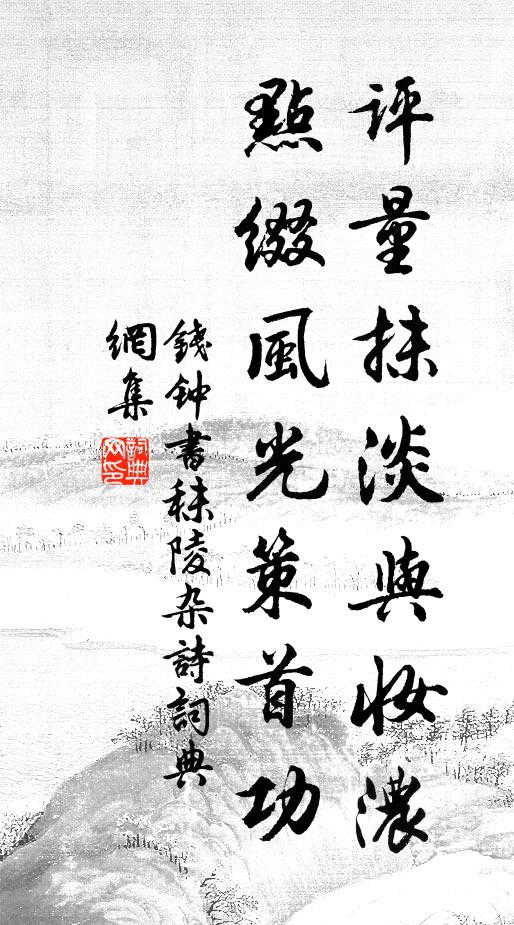 评量抹淡與妝濃
點綴風光策首功
錢钟書秣陵杂詩詞典
網集
詞典
网印